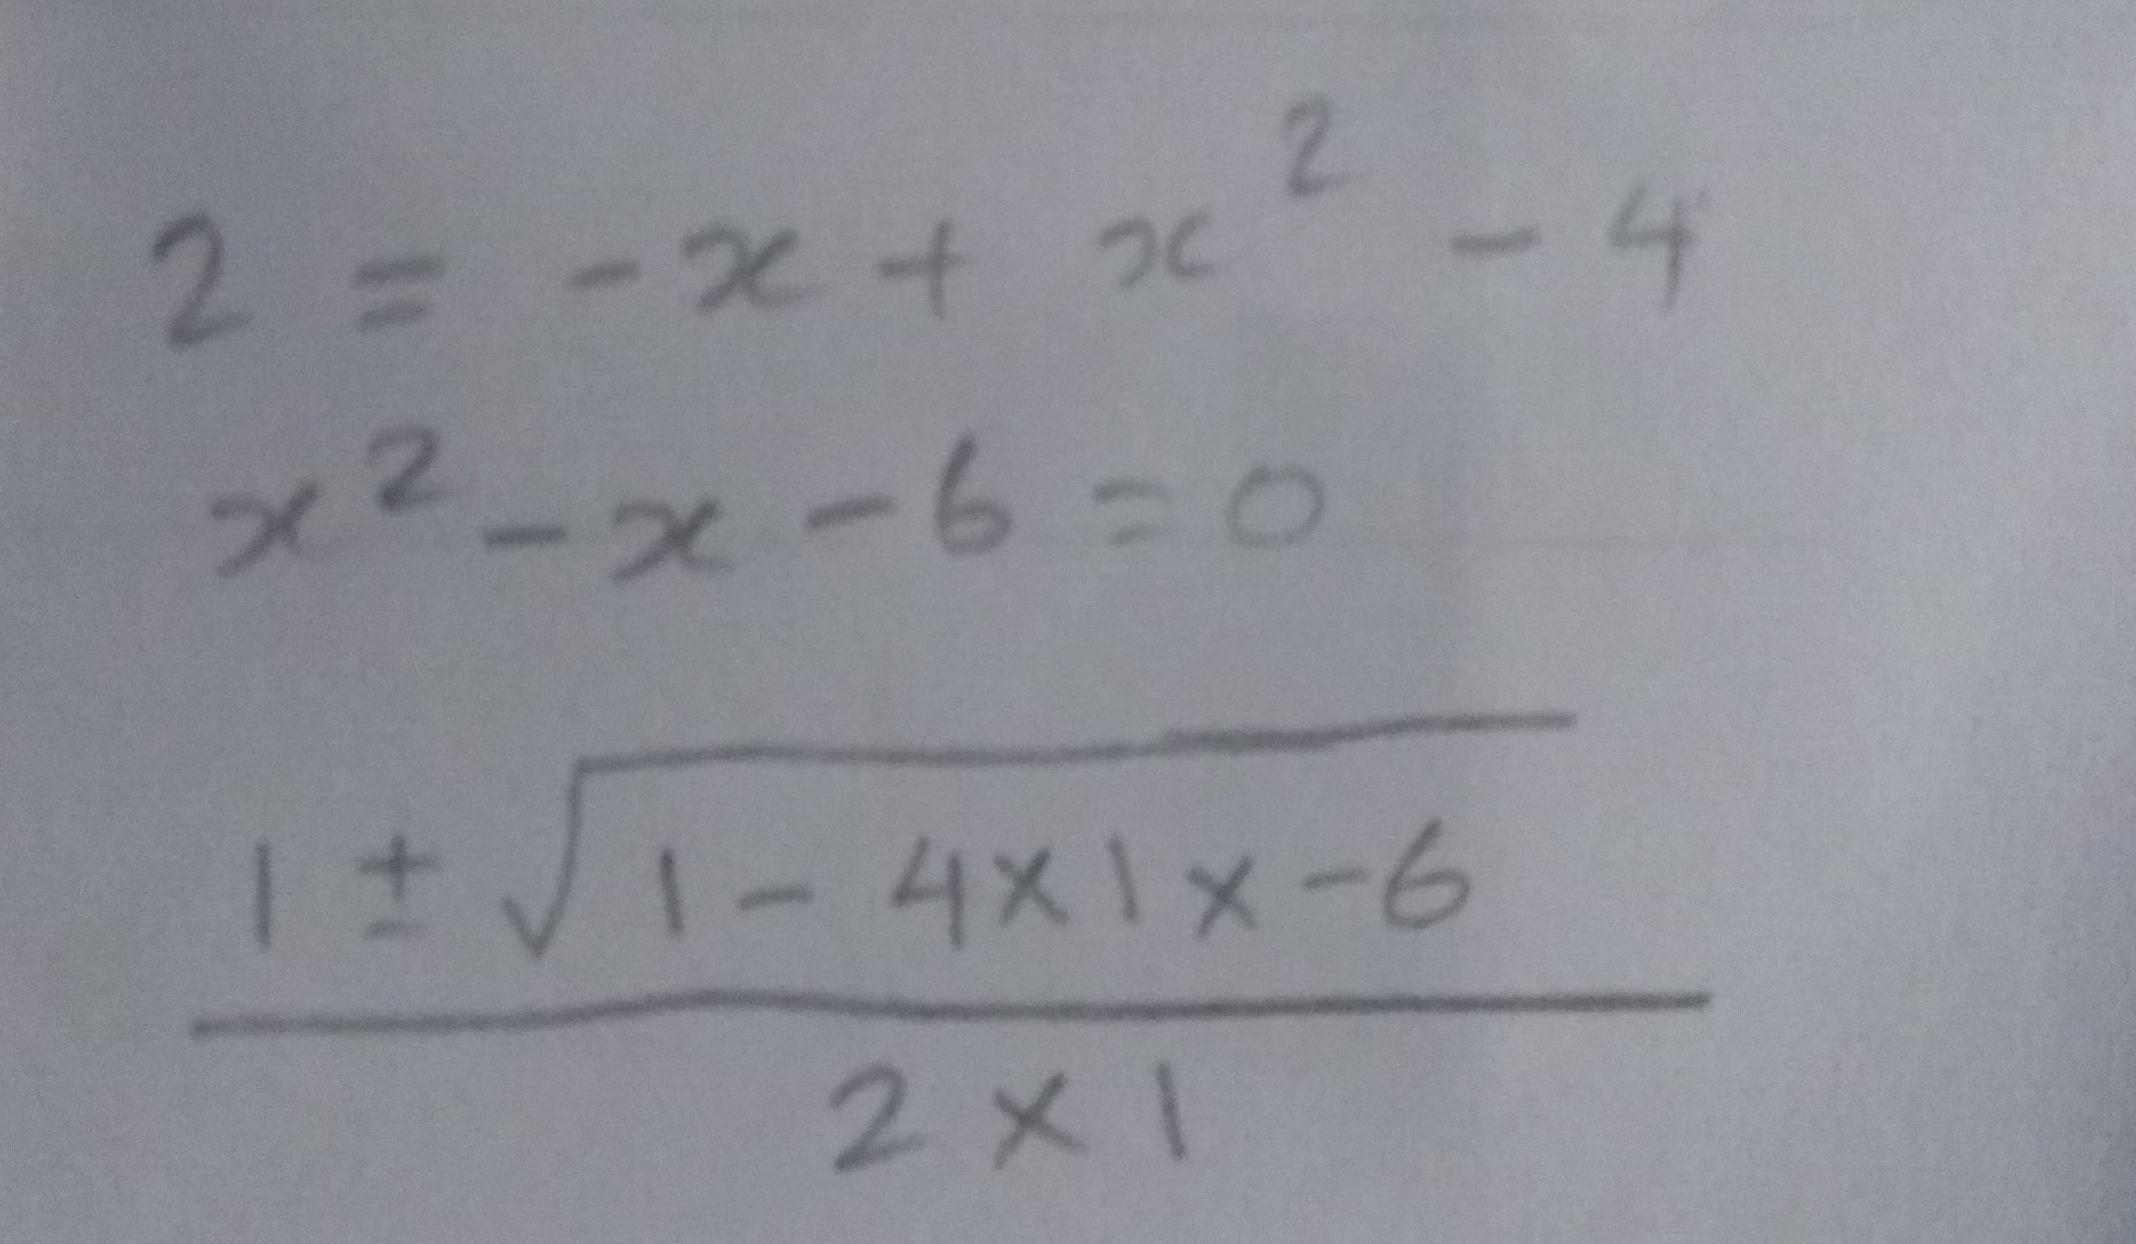 2 = -x + x² - 4
x² - x - 6 = 0
1 ± √1 - 4x1x-6
2 x 1